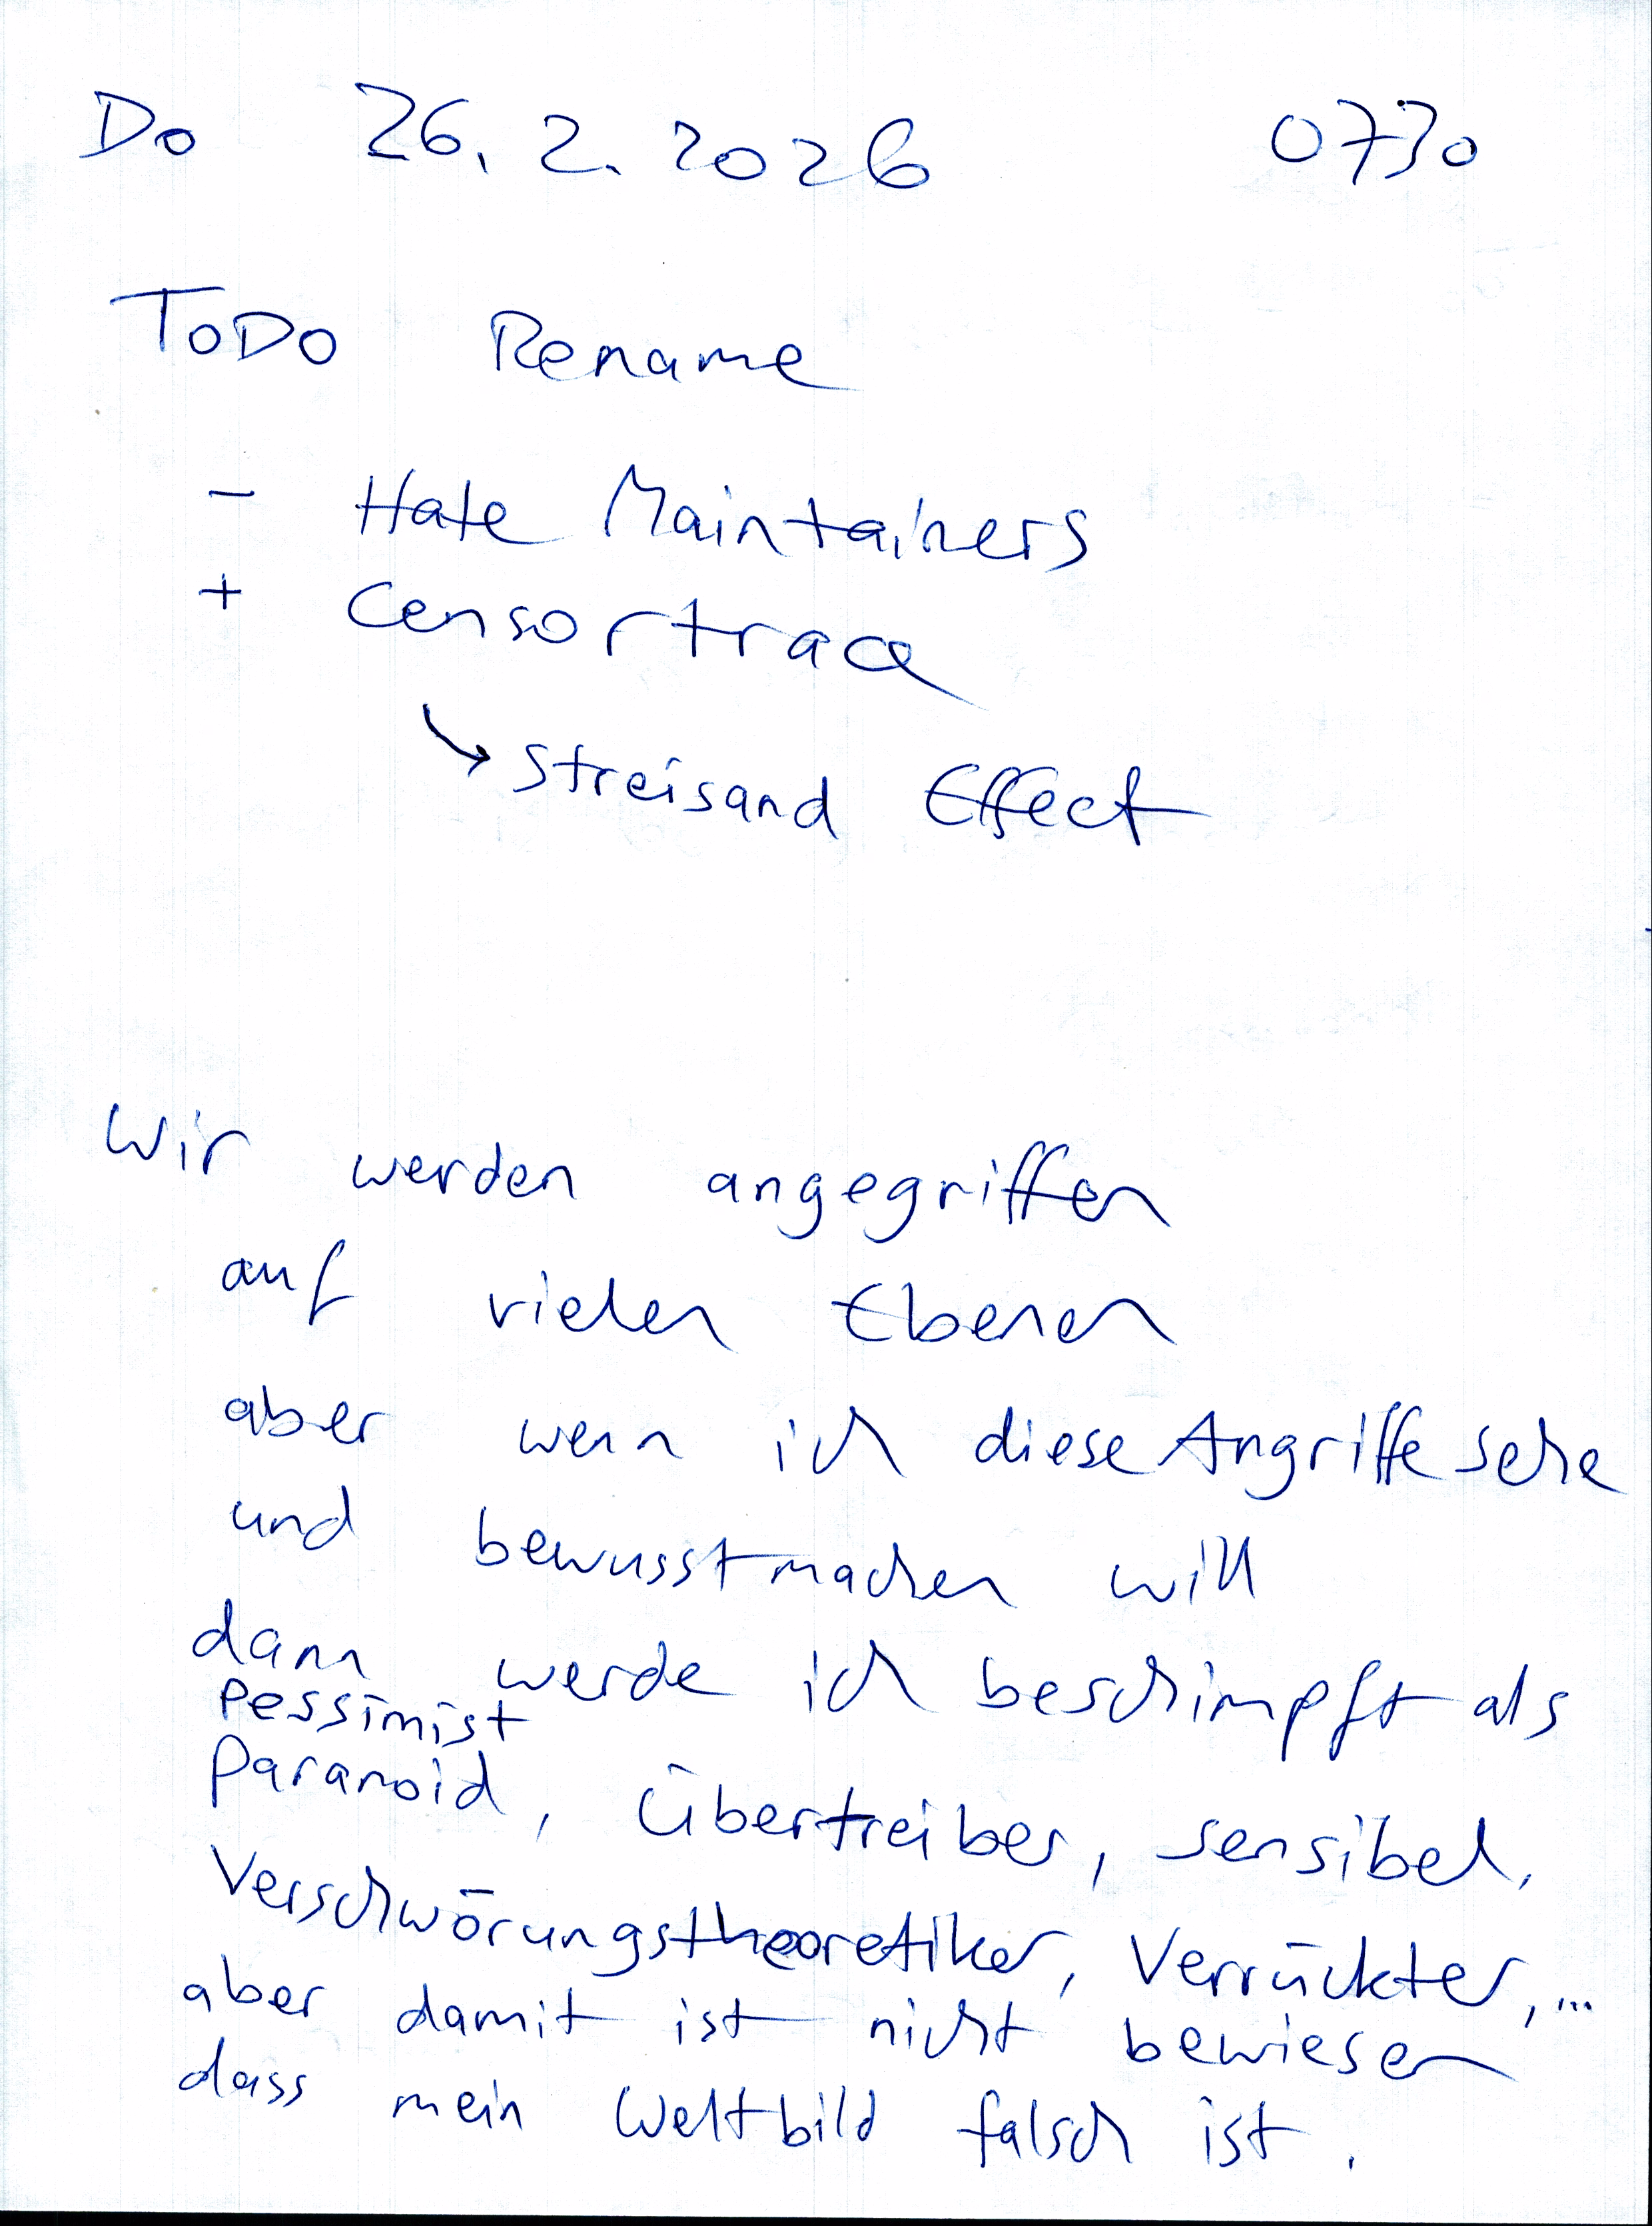 Do 26. 2. 2026 0730
ToDo Rename
- Hate Maintainers
+ Censortrace
↘ Streisand Effect
Wir werden angegriffen
auf vielen Ebenen
aber wenn ich diese Angriffe sehe
und bewusstmachen will
dann werde ich beschimpft als
Pessimist
Paranoid, Übertreiber, sensibel,
Verschwörungstheoretiker, Verrückter, ...
aber damit ist nicht bewiesen
dass mein Weltbild falsch ist.